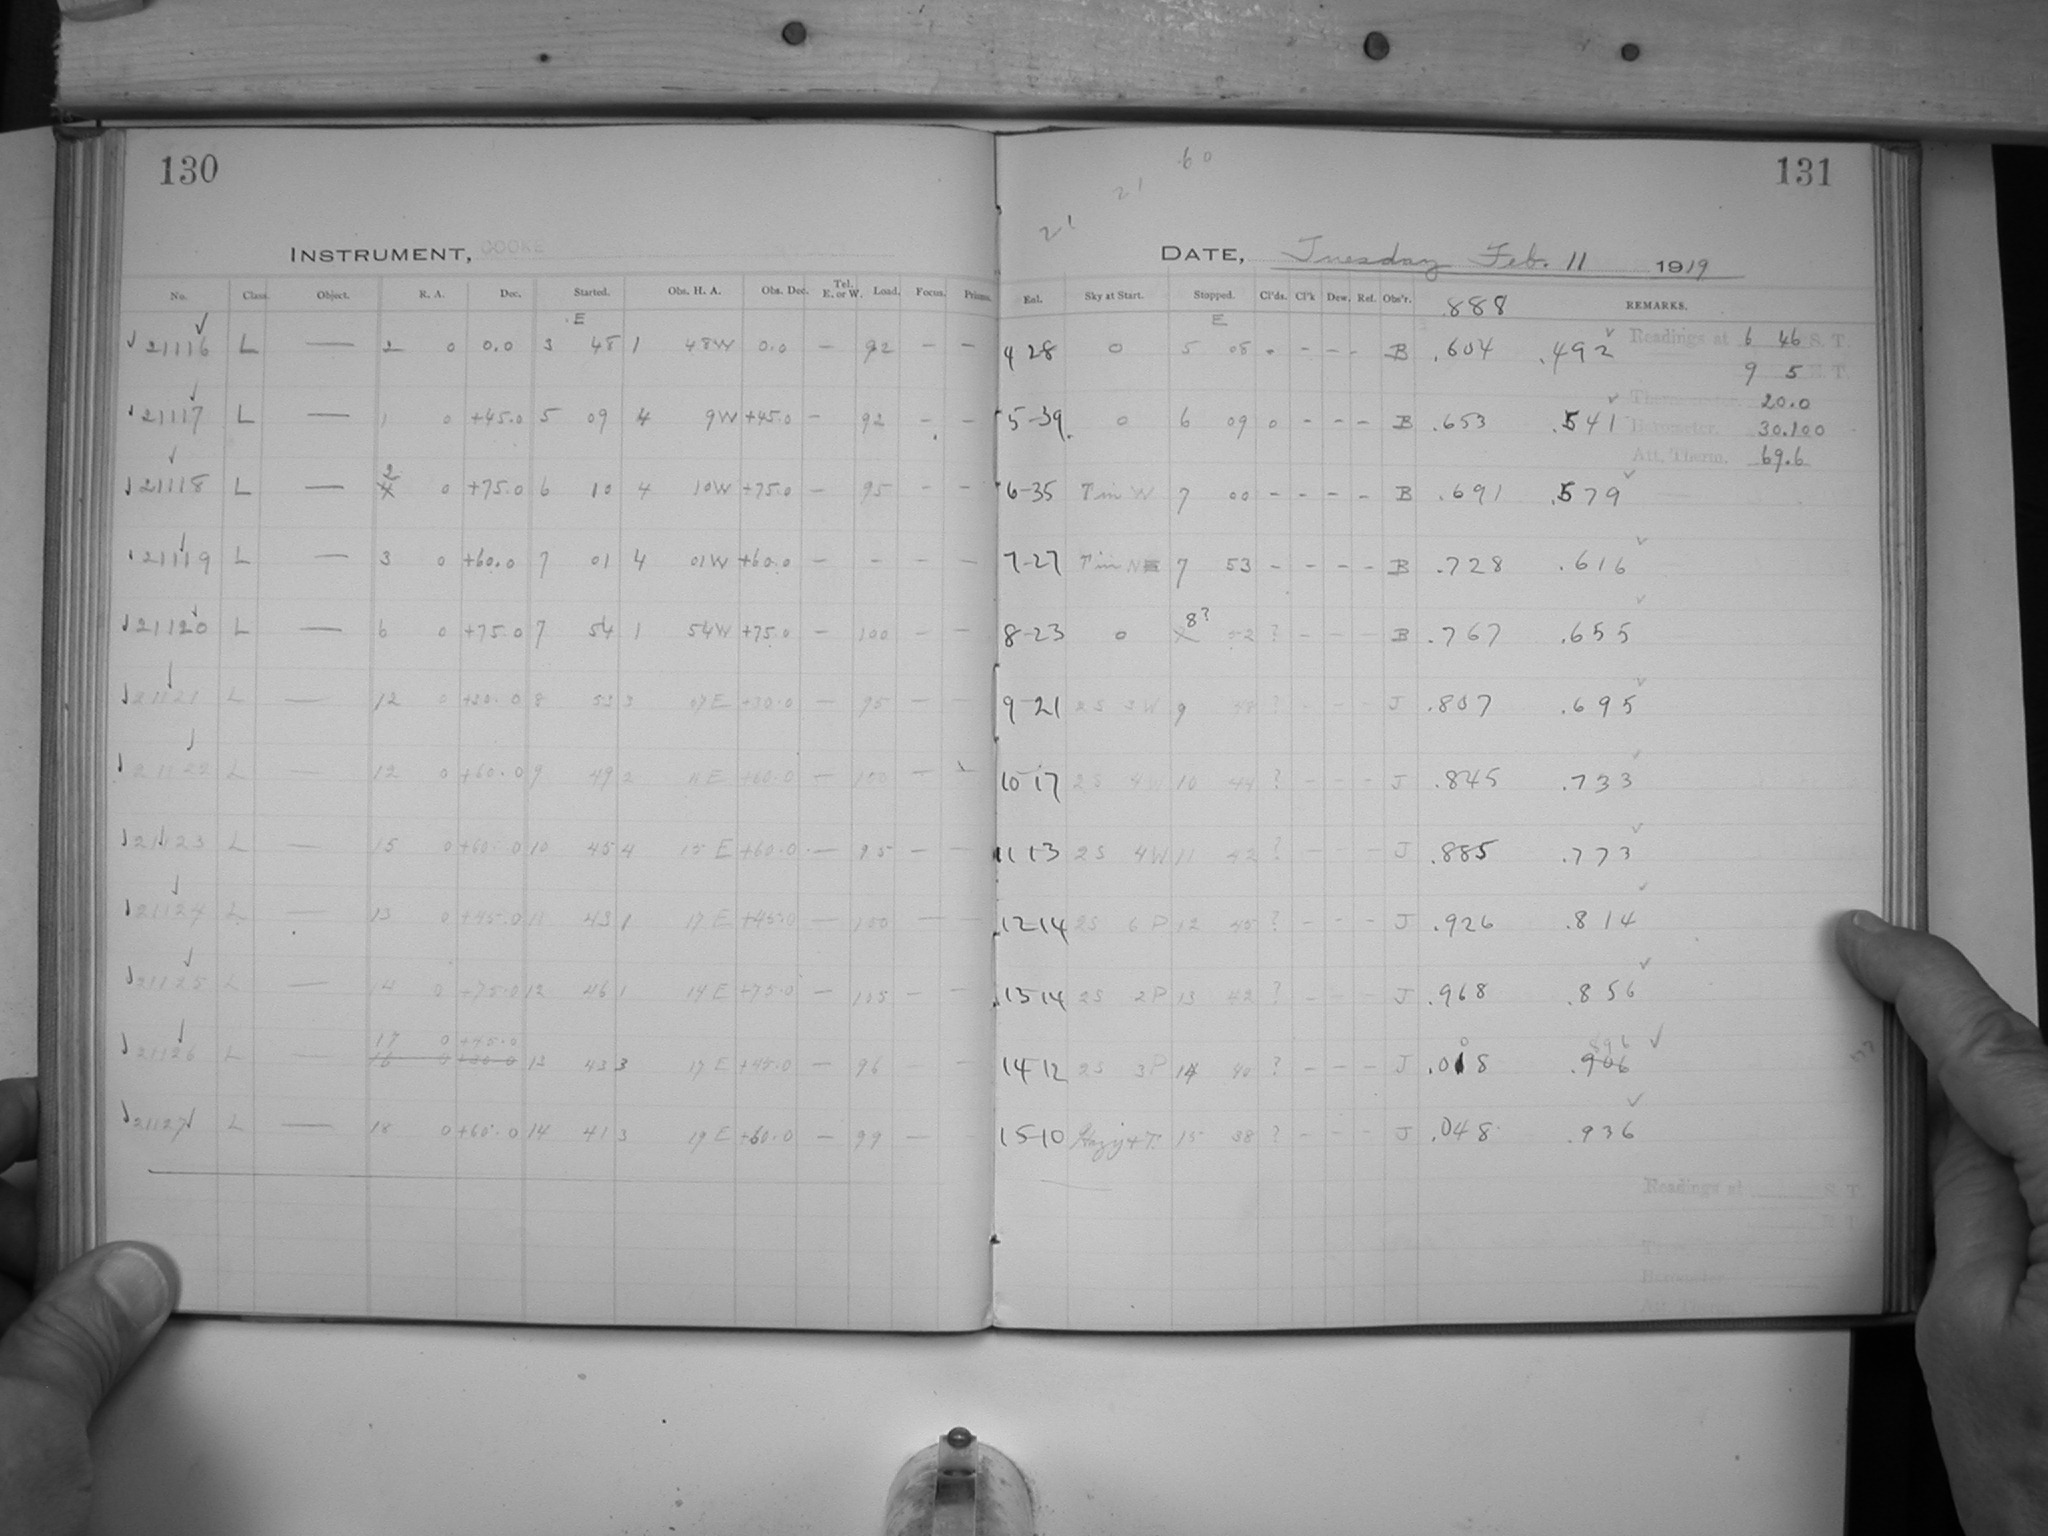 130
INSTRUMENT, COOKE
No. Class. Object. R. A. Dec. Started. Obs. H. A. Obs. Dec. Tel. E. or W. Load. Focus. Prisms.
E
21116 L — 2 0 0.0 3 48 1 48W 0.0 – 92 – –
21117 L — 1 0 +45.0 5 09 4 9W +45.0 – 92 – –
2
21118 L — 0 +75.0 6 10 4 10W +75.0 – 95 – –
21119 L — 3 0 +60.0 7 01 4 01W +60.0 – – – –
21120 L — 6 0 +75.0 7 54 1 54W +75.0 – 100 – –
21121 L — 12 0 +30.0 8 53 3 07E +30.0 – 95 – –
21122 L — 12 0 +60.0 9 49 2 11E +60.0 – 100 –
21123 L — 15 0 +60.0 10 45 4 15E +60.0 – 95 – –
21124 L — 13 0 +45.0 11 43 1 17E +45.0 – 100 – –
21125 L — 14 0 +75.0 12 46 1 14E +75.0 – 105 – –
17 0 +45.0
21126 L — 16 0 +30.0 13 43 3 17E +45.0 – 96 – –
21127 L — 18 0 +60.0 14 41 3 19E +60.0 – 99 – –
60
21
21
131
DATE, Tuesday Feb. 11 1919
Eol. Sky at Start. Stopped. Cl'ds. Cl'k Dew. Ref. Obs'r. .888 REMARKS.
E
4 28 0 5 08 – – – B .604 .492 Readings at 6 46 S. T.
9 5 E. T.
Thermometer, 20.0
5-39 0 6 09 0 – – – B .653 .541 Barometer, 30.100
Att. Therm. 69.6
6-35 T in W 7 00 – – – – B .691 .579
7-27 T in N 7 53 – – – – B .728 .616
8?
8-23 0 52 ? – – – B .767 .655
9-21 2S 3W 9 48 ? – – – J .807 .695
10-17 2S 4W 10 44 ? – – – J .845 .733
11 13 2S 4W 11 42 ? – – – J .885 .773
12-14 2S 6P 12 45 ? – – – J .926 .814
13 14 2S 2P 13 42 ? – – – J .968 .856
0 896
14 12 2S 3P 14 40 ? – – – J .018 .906
15-10 Hazy + T. 15 38 ? – – – J .048 .936
Readings at S. T.
E. T.
Barometer,
Att. Therm.